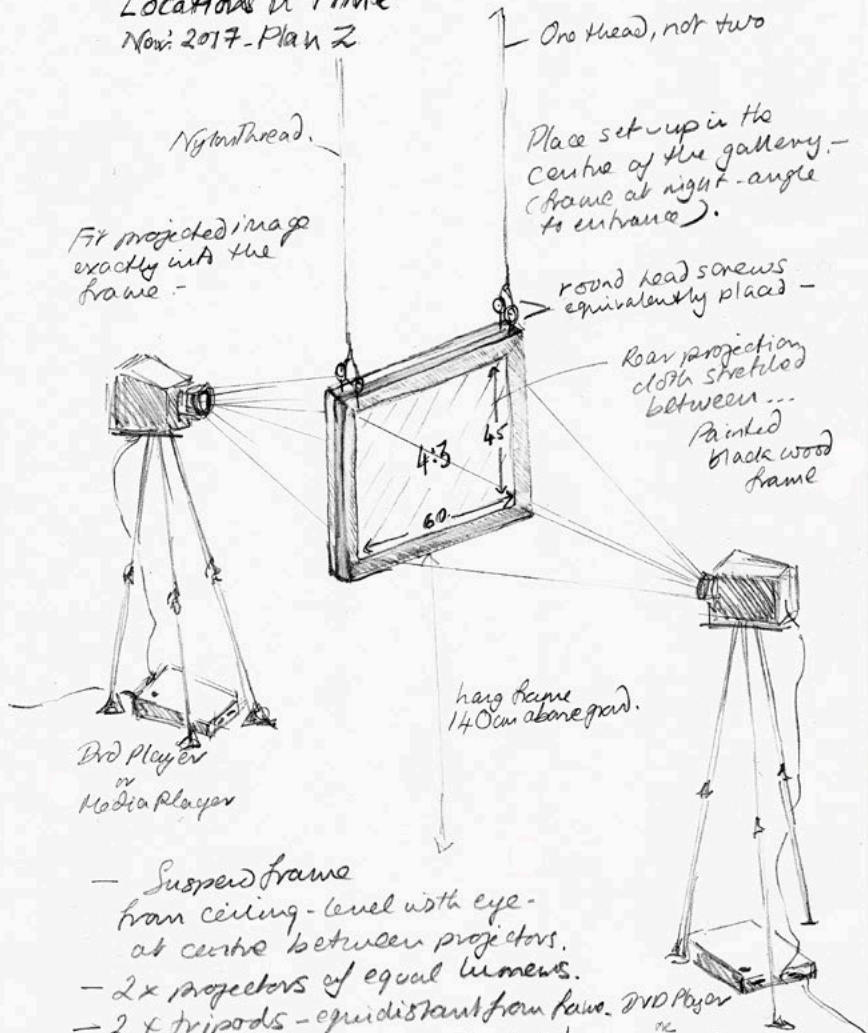 Locations in Time
Nov: 2017 - Plan Z
One thead, not two
Nylon Thread.
Place set-up in the
centre of the gallery. -
(frame at right-angle
to entrance).
Fit projected image
exactly into the
frame -
round head screws
equivalently placed -
Rear projection
cloth stretched
between...
Painted
black wood
frame
4:3
45
60
hang frame
140cm above grond.
DVD Player
or
Media Player
- Suspend frame
from ceiling - level with eye -
at centre between projectors.
- 2 x projectors of equal lumens.
- 2 x tripods - equidistant from frame.
DVD Player
or